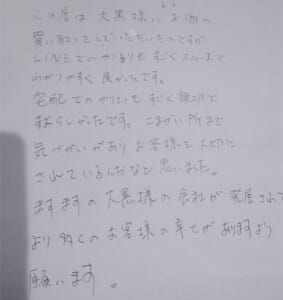 この度は 大黒様に お酒の
買い取りをしていただいたのですが
LINEでのやりとりも すごくスムーズで
わかりやすく 良かったです。
宅配でのやりとりも すごく親切で
素晴らしかったです。こまかい所まで
気づかいがあり お客様を 大切に
されているんだなと思いました。
ますますの 大黒様の 会社が 発展されて
より 多くの お客様の 幸せが ありますよう
願います。